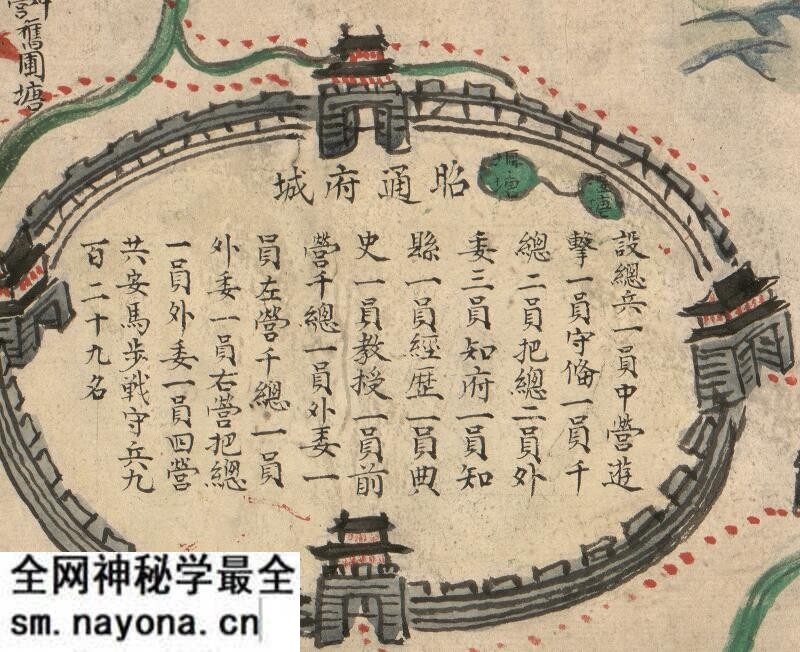 昭通府城
堰塘
設總兵一員中營遊
擊一員守俻一員千
總二員把總二員外
委三員知府一員知
縣一員經歷一員典
史一員教授一員前
營千總一員外委一
員左營千總一員
外委一員右營把總
一員外委一員四營
共安馬步戦守兵九
百二十九名
營舊圃塘
全网神秘学最全
sm.nayona.cn